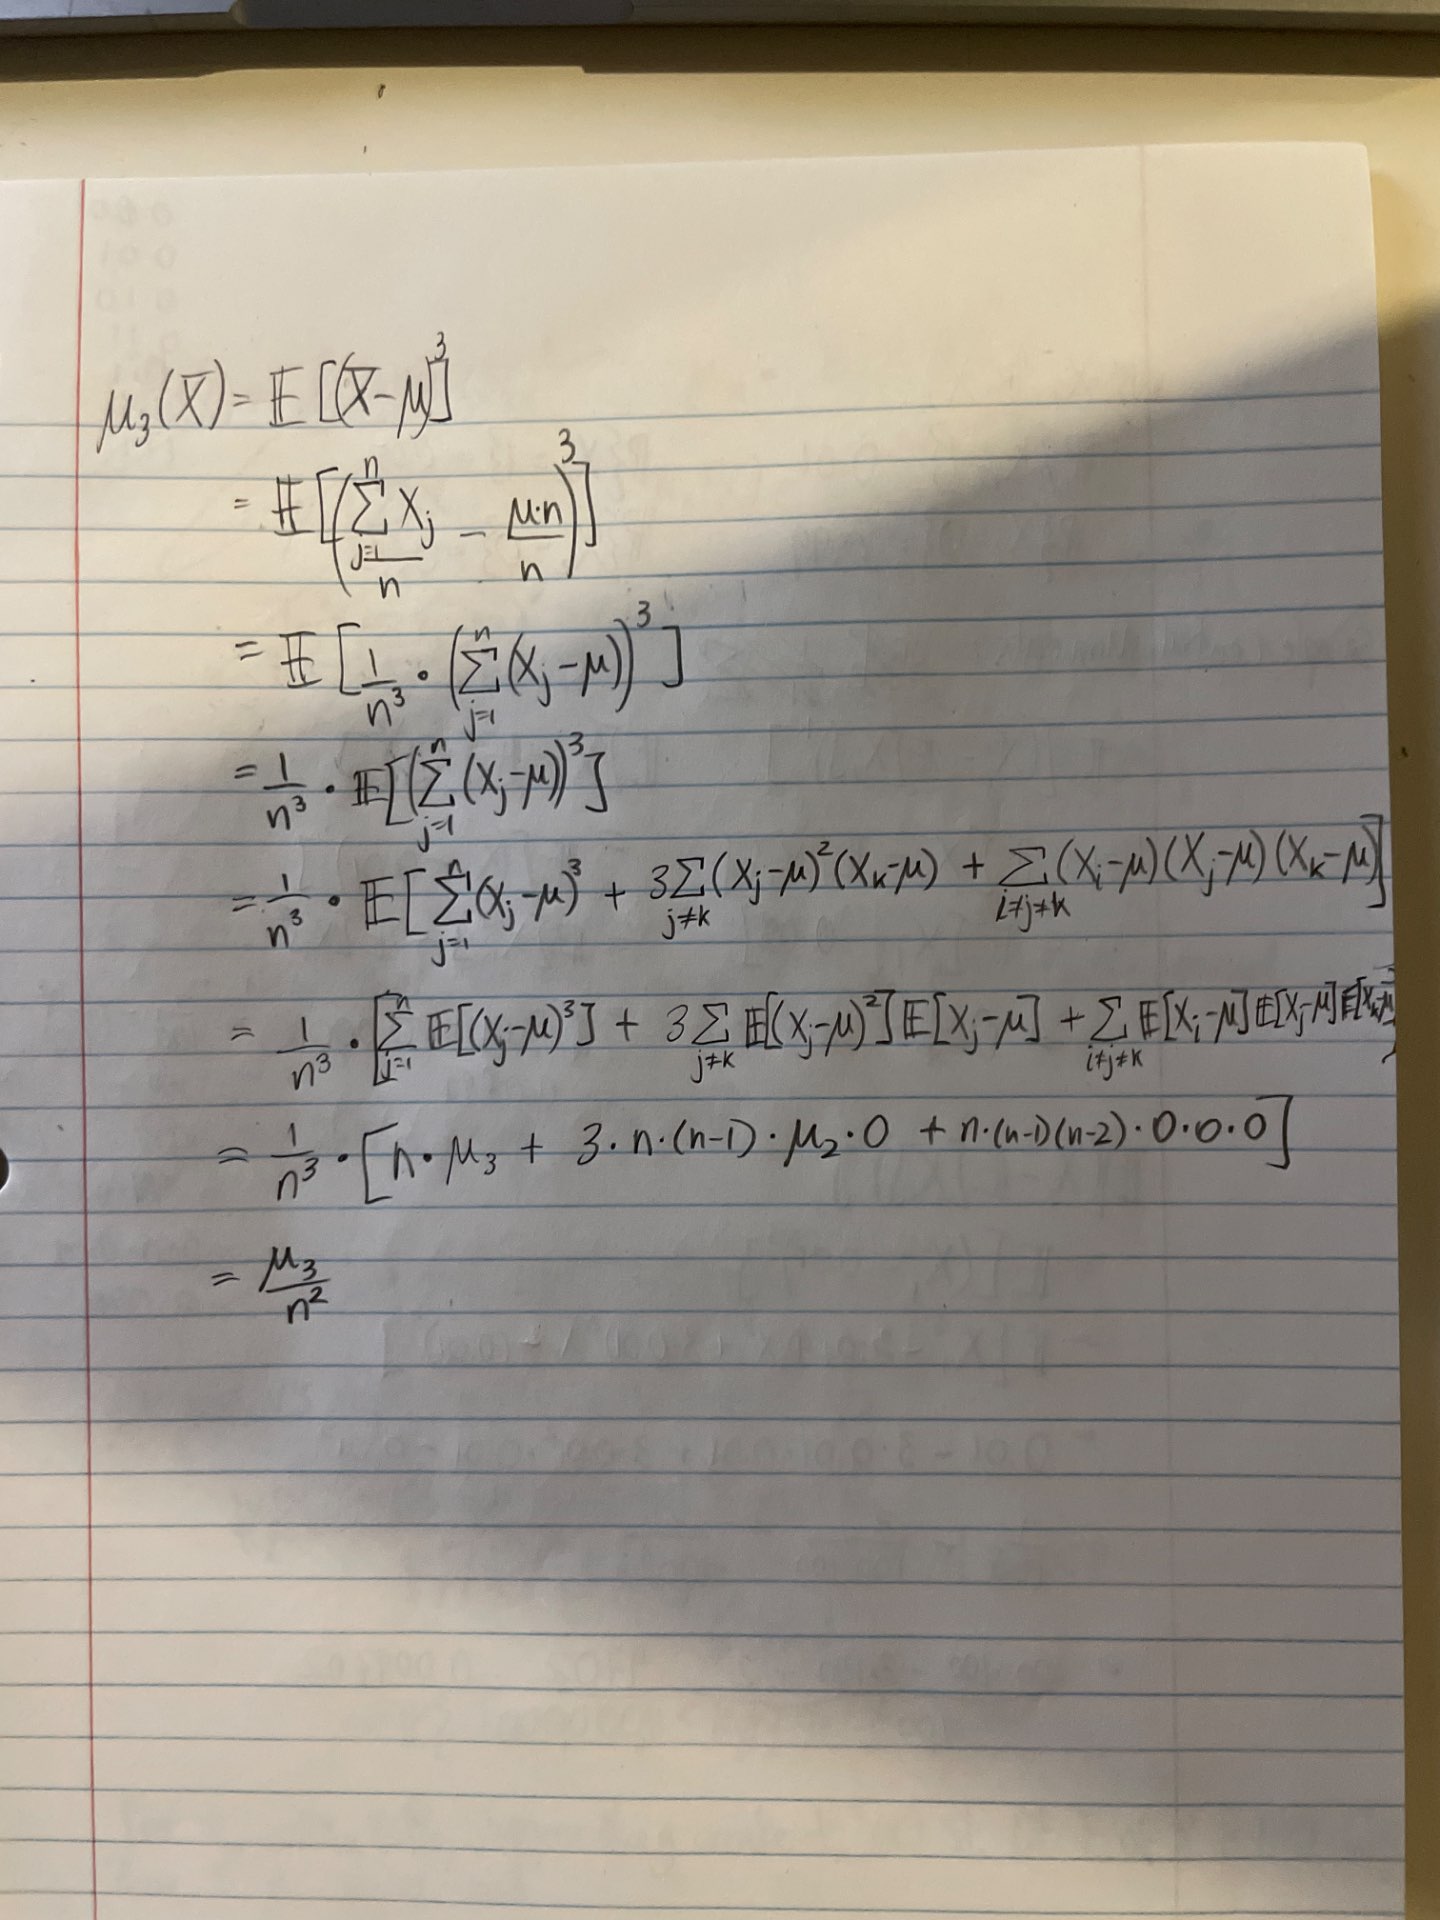 μ₃(X̄) = 𝔼[(X̄-μ)³]
= 𝔼[(∑_{j=1}^{n} X_j / n - μ·n / n)³]
= 𝔼[1/n³ · (∑_{j=1}^{n} (X_j-μ))³]
= 1/n³ · 𝔼[(∑_{j=1}^{n} (X_j-μ))³]
= 1/n³ · 𝔼[∑_{j=1}^{n} (X_j-μ)³ + 3∑_{j≠k} (X_j-μ)²(X_k-μ) + ∑_{i≠j≠k} (X_i-μ)(X_j-μ)(X_k-μ)]
= 1/n³ · [∑_{j=1}^{n} 𝔼[(X_j-μ)³] + 3∑_{j≠k} 𝔼[(X_j-μ)²]𝔼[X_j-μ] + ∑_{i≠j≠k} 𝔼[X_i-μ]𝔼[X_j-μ]𝔼[X_k-μ]]
= 1/n³ · [n·μ₃ + 3·n·(n-1)·μ₂·0 + n·(n-1)(n-2)·0·0·0]
= μ₃/n²